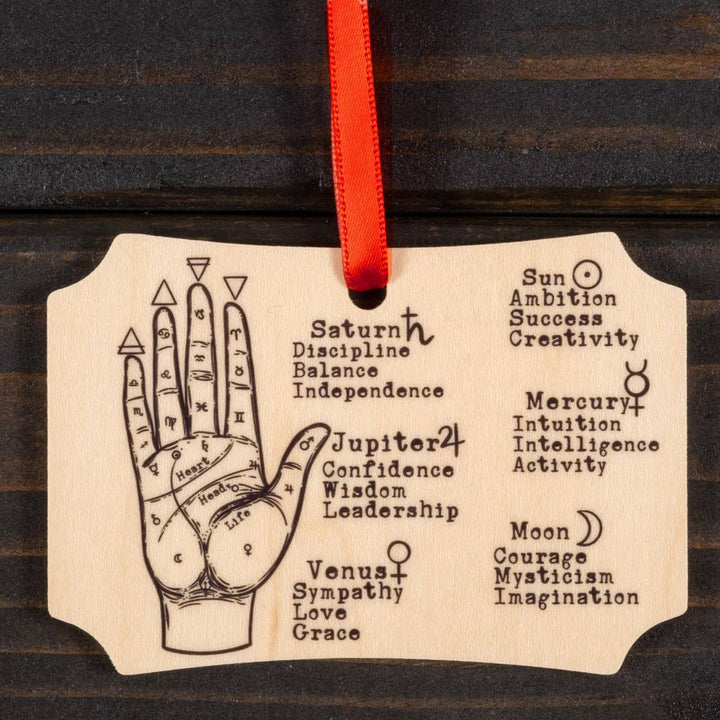 Saturn♄
Discipline
Balance
Independence
Jupiter♃
Confidence
Wisdom
Leadership
Venus♀
Sympathy
Love
Grace
Sun☉
Ambition
Success
Creativity
Mercury☿
Intuition
Intelligence
Activity
Moon☽
Courage
Mysticism
Imagination
Heart
Head
Life